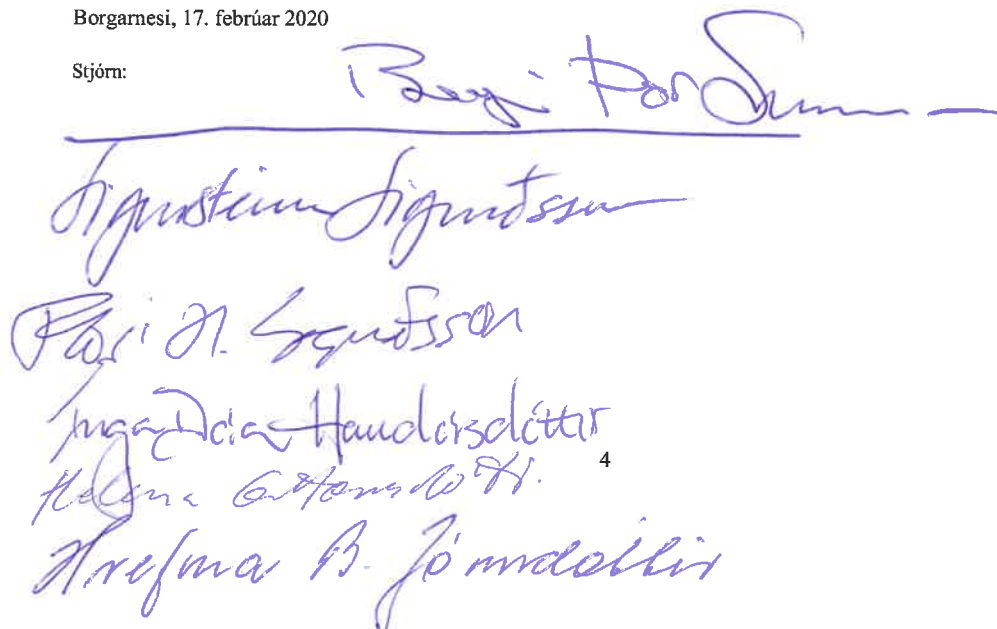 Borgarnesi, 17. febrúar 2020
Stjórn:
Sigursteinn Sigurðsson
H. Sigurðsson
Inga Dóra Halldórsdóttir
4
Helena Guttormsdóttir
Hrefna B. Jónsdóttir